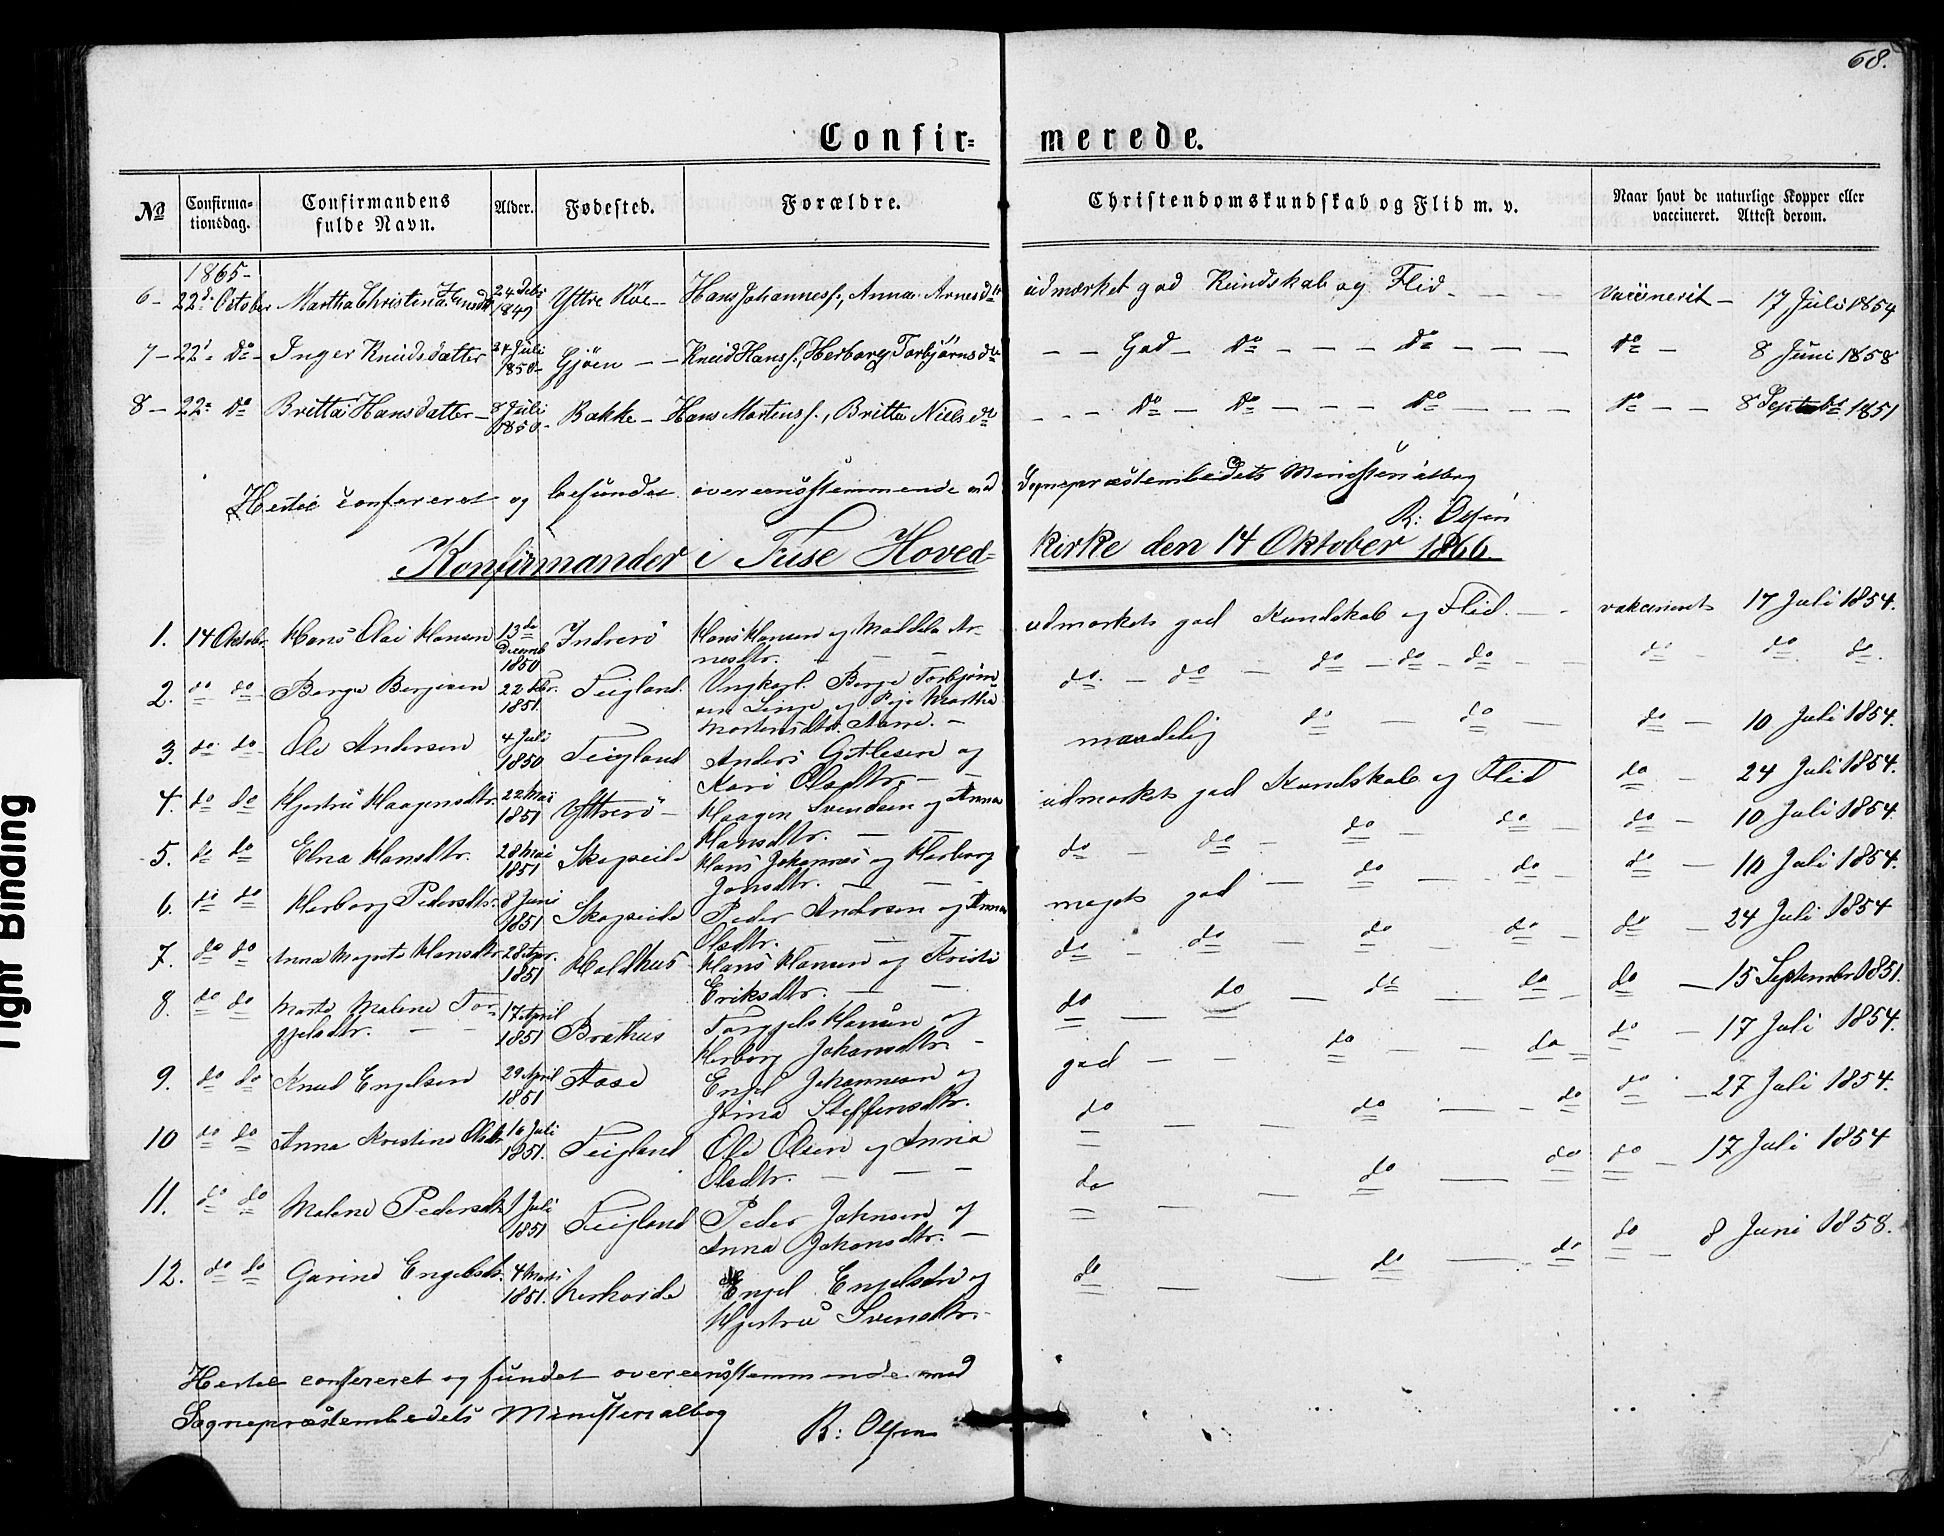 68.
Confir- merede.
No Confirma- tionsdag. Confirmandens fulde Navn. Alder. Fødested. Forældre. Christendomskundskab og Flid m. v. Naar havt de naturlige Kopper eller vaccineret. Attest derom.
1865-
6- 22d. October Martha Christina 1849 Yttre Röe- Hans Johannesf., Anna Arnesdtr udmærket god Kundskab og Flid - - - Vaccinerit - 17 Juli 1854
7- 22' do- Inger Knudsdatter 24 Juli 1850- Gjöen - - Knud Hansf., Herborg Torbjörnsdtr - - God - do - - - do - - - do - 8 Juni 1858
8- 22 do Britta Hansdatter- 8 Juli 1850- Bakke - Hans Mortensf., Britta Nielsdtr - - - do - do - - - do - - - do - - 8 Septbr 1851
Hertil confereret og befundet overeensstemmende med Sognepræstembedets Ministerialbog
R: Olsen
Konfirmander i Fuse Hoved- kirke den 14 Oktober 1866.
1. 14 Oktober Hans Olai Hansen 13de Decemb 1850 Indrerö Hans Hansen og Ar- nesdtr. - - udmærket god Kundskab og Flid - - vakcineret 17 Juli 1854.
2. do do Børge Børgesen 22 Febr. 1851. Teigland. Ungkarl Børge Torbjørn- sen og Pige Martha Mortensdtr. - do - do - do - do - do - - do - do do.
3. do do Ole Andersen 4 Juli 1850 Teigland Anders Gitlesen og Kari Olsdtr. - - maadelig do - do - do - 10 Juli 1854.
4. do do Kjestru Haagensdtr. 22 Mai 1851 Yttrerö - Haagen Svendsen og Anna Hansdtr. - - udmærket god Kundskab og Flid do - 24 Juli 1854.
5. do do Elna Hansdtr. 28 Mai 1851 Skogseide Hans Johannes og Herborg Jonsdtr. - - do - do - do - do - do - 10 Juli 1854.
6. do do Herborg Pedersdtr. 8 Juni 1851 Skogseide Peder Andersen og Anna Olsdtr. - - meget god - do - do do - 10 Juli 1854.
7. do do Anna Hansdtr 28 Apr. 1851 Holdhus Hans Hansen og Kristi Eriksdtr. - - do - do - do - do - do - 24 Juli 1854
8. do do Marte Malene Tor- gjelsdtr. - - 17 April 1851 Brathus Torgjels Hansen og Herborg Johansdtr. - do - do - do - do - do - 15 September 1851.
9. do do Knud Engelsen 29 April 1851 Aase Engel Johannesen og Stina Steffensdtr. god - - do - - do - do - 17 Juli 1854.
10 do do Anna Kristine Olsdtr 16 Juli 1851. Teigland Ole Olsen og Anna Olsdtr. - - do - - do - - do do - 27 Juli 1854.
11. do do Malene Pedersdtr 1 Juli 1851 Teigland Peder Johnsen og Anna Johansdtr. - do - - do - do do - 17 Juli 1854
12. do do Gurine Engelsdtr. 4 Marts 1851. Engel Engelsen og Kjestru Svensdtr. - do - - do - do do - 8 Juni 1858.
Hertil confereret og fundet overeensstemmende med
Sognepræstembedets Ministerialbog
R: Olsen
Tight Binding